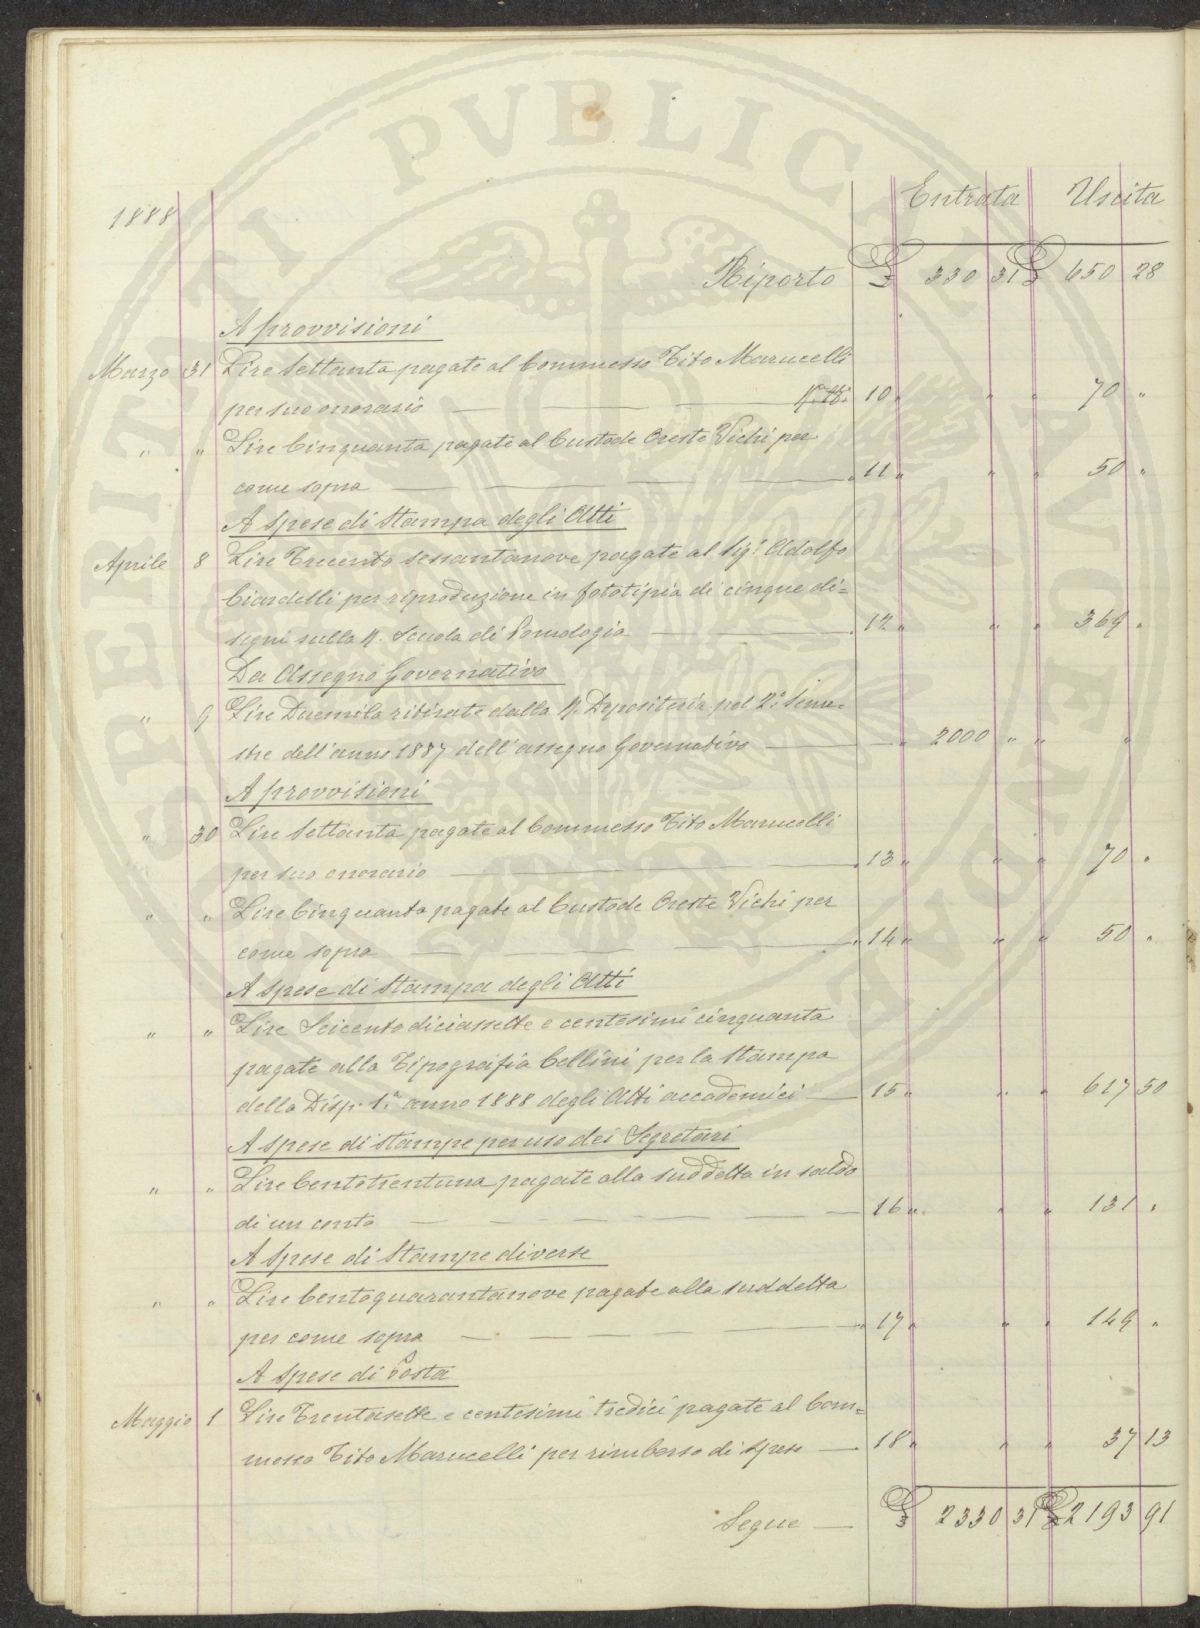 PROSPERITATI PVBLICAE AVGENDAE
Entrata Uscita
1888
Riporto £ 330 31 £ 650 28
A provvisioni
Marzo 31 Lire Settanta pagate al Commesso Tito Marucelli
per suo onorario — — — 10 " " " 70 "
" " Lire Cinquanta pagate al Custode Oreste Vichi per
come sopra — — — — 11 " " " 50 "
A Spese di Stampa degli Atti
Aprile 8 Lire Trecento sessantanove pagate al Sigr. Adolfo
Ciardelli per riproduzione in fototipia di cinque di=
segni sulla R. Scuola di Pomologia — — 12 " " " 369 "
Da Assegno Governativo
" 9 Lire Duemila ritirate dalla R. Depositeria pel 2.° Seme=
stre dell'anno 1887 dell'assegno Governativo — — " 2000 " " "
A provvisioni
" 30 Lire Settanta pagate al Commesso Tito Marucelli
per suo onorario — — — 13 " " 70 "
" " Lire Cinquanta pagate al Custode Oreste Vichi per
come sopra — — — — 14 " " " 50 "
A Spese di Stampa degli Atti
" " Lire Seicentodiciassette e centesimi cinquanta
pagate alla Tipografia Cellini per la Stampa
della Disp. 1.a anno 1888 degli Atti accademici — 15 " " " 617 50
A Spese di stampe per uso dei Segretari
" " Lire Centotrentuna pagate alla suddetta in saldo
di un conto — — — — — 16 " " " 131 "
A Spese di Stampe diverse
" " Lire Centoquarantanove pagate alla suddetta
per come sopra — — — — 17 " " " 149 "
A Spese di Posta
Maggio 1 Lire Trentasette e centesimi tredici pagate al Com=
messo Tito Marucelli per rimborso di Spese — 18 " " " 37 13
Segue — £ 2330 31 £ 2193 91